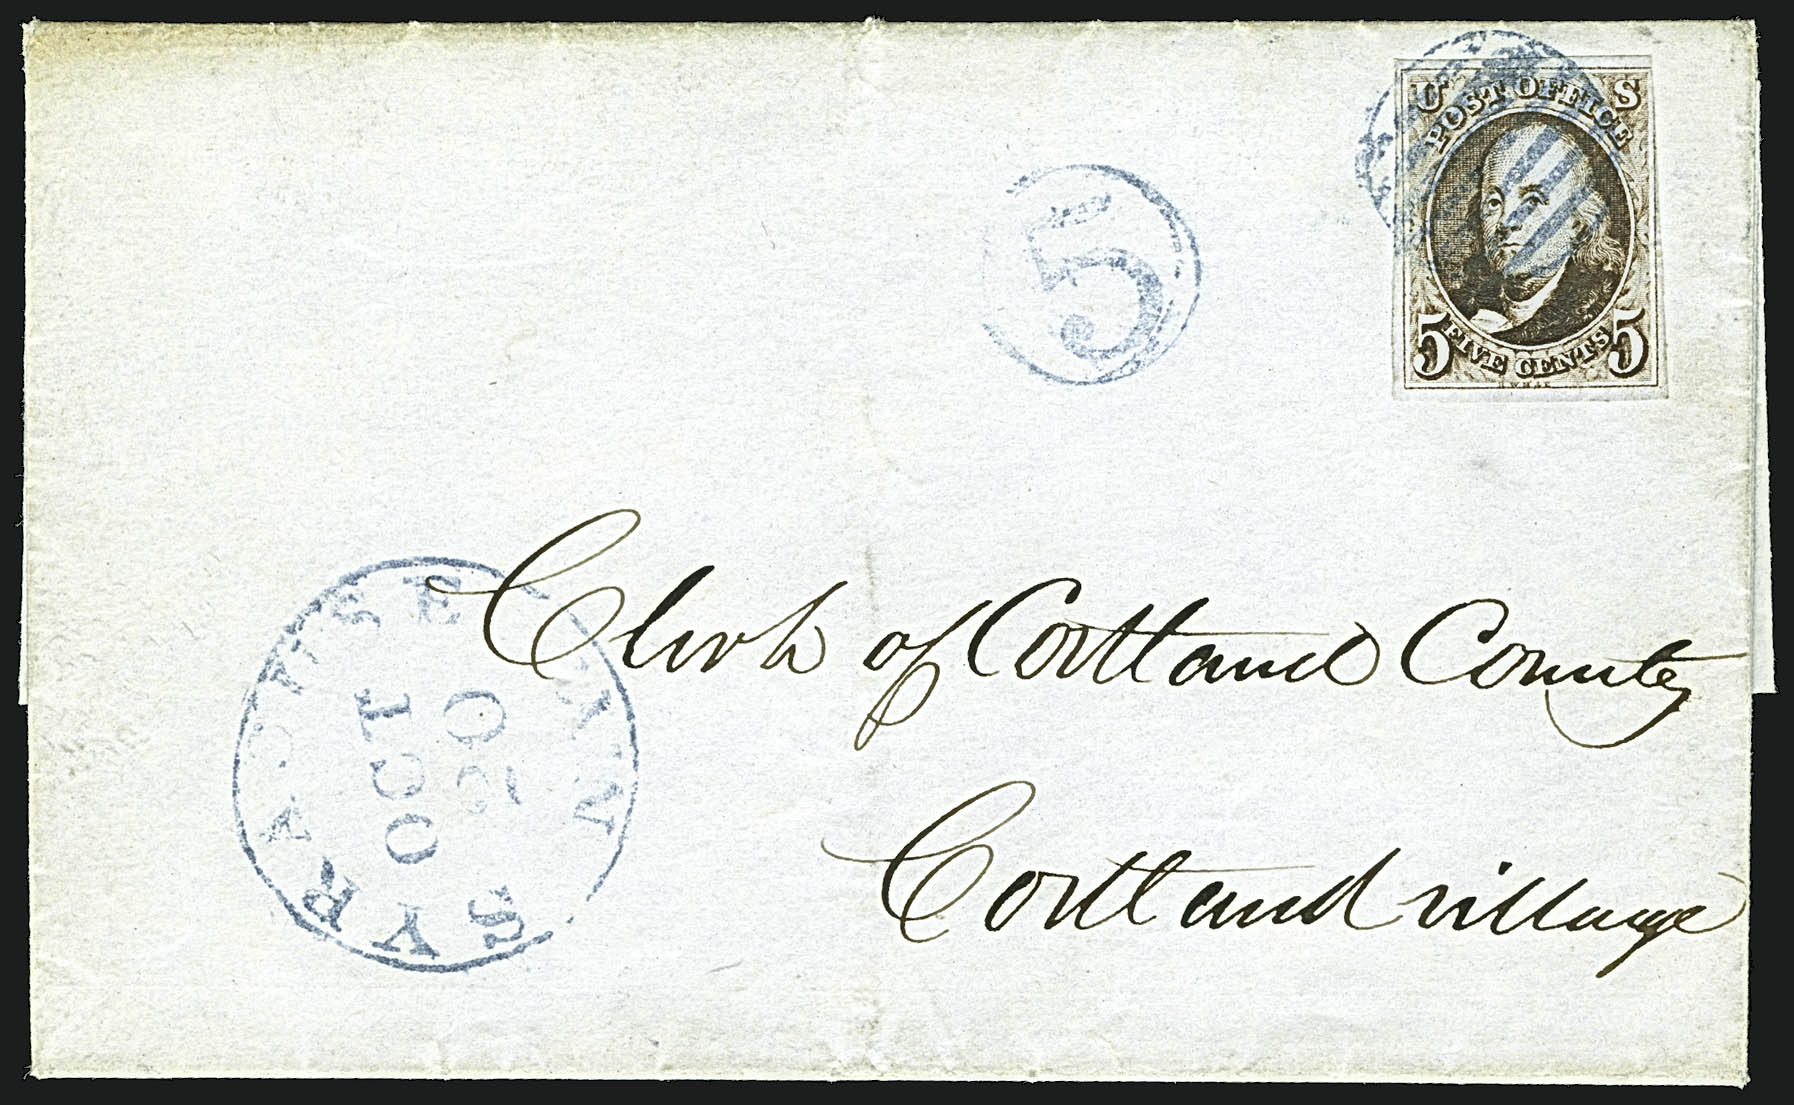 U S
POST OFFICE
5 FIVE CENTS 5
5
SYRACUSE N.Y.
OCT
20
Clerk of Cortland County
Cortland village